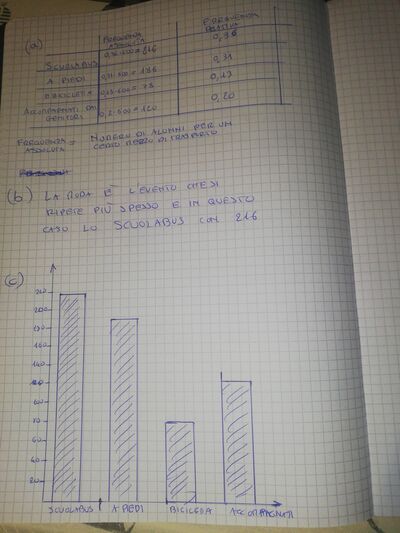 (a)
FREQUENZA ASSOLUTA
FREQUENZA RELATIVA
SCUOLABUS 0,36·600=216 0,36
A PIEDI 0,31·600=186 0,31
BICICLETTA 0,13·600=78 0,13
ACCOMPAGNATI DAI GENITORI 0,2·600=120 0,20
FREQUENZA ASSOLUTA = NUMERO DI ALUNNI PER UN
CERTO MEZZO DI TRASPORTO
(b) LA MODA È L'EVENTO CHE SI
RIPETE PIÙ SPESSO E IN QUESTO
CASO LO SCUOLABUS CON 216
(c)
200
160
140
120
100
60
40
20
SCUOLABUS A PIEDI BICICLETTA ACCOMPAGNATI